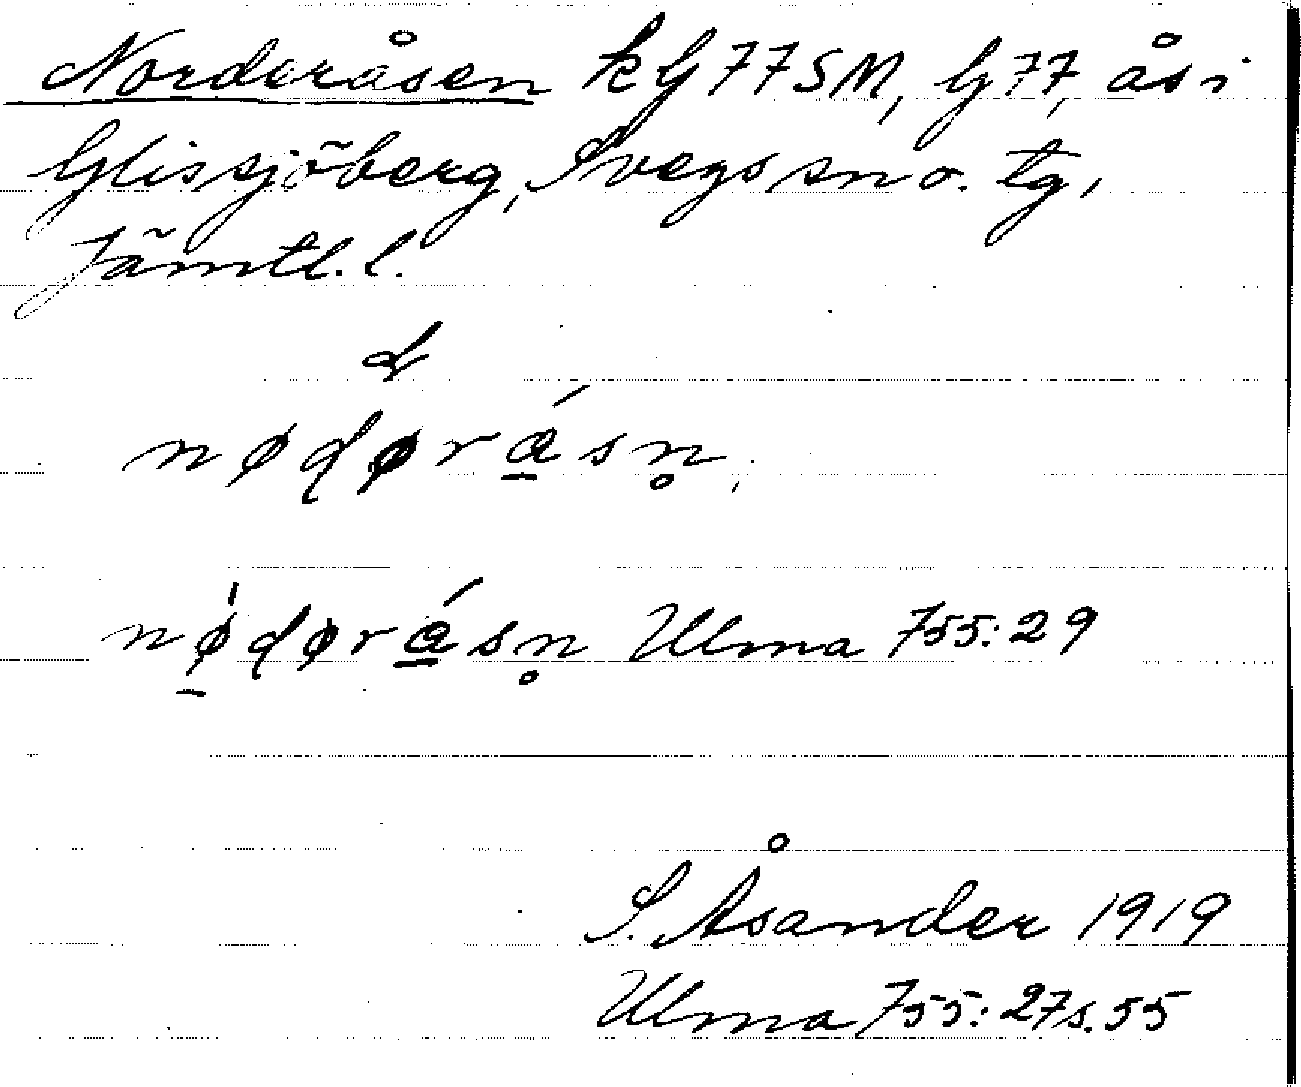 Norderåsen k G 77 SM, G 77, ås i
Glissjöberg, Svegs sn o. tg,
Jämtl. l.
nødørásn̥,
nø̍dørásn̥ Ulma 755:29
S. Åsander 1919
Ulma 755:27 s. 55